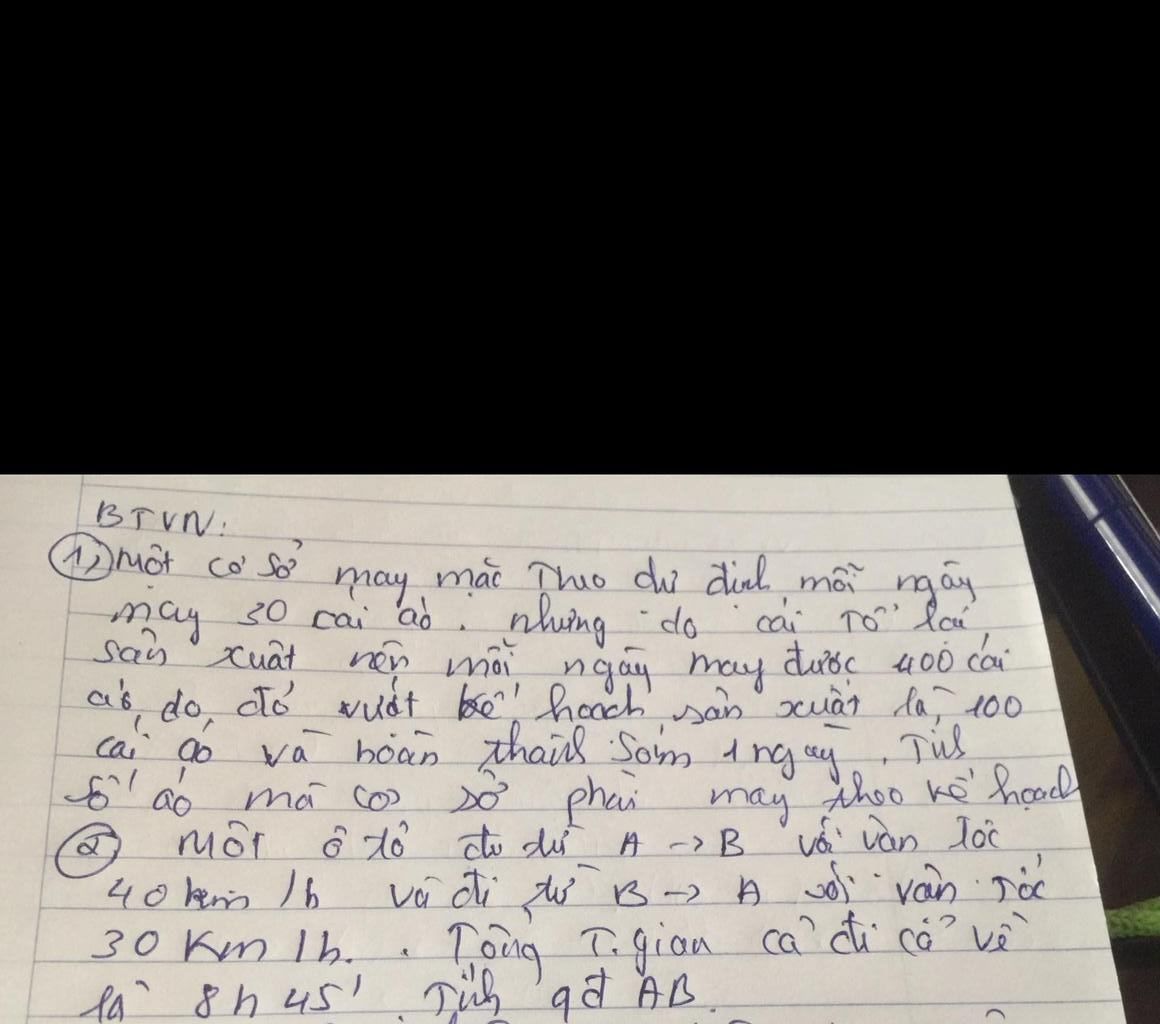 BTVN:
1, Một cơ sở may mặc Theo dự định mỗi ngày
may 30 cái áo. nhưng do cải Tổ lại
sản xuất nên mỗi ngày may được 400 cái
áo, do đó vượt kế hoạch sản xuất là 100
cái áo và hoàn thành sớm 1 ngày. Tính
số áo mà cơ sở phải may theo kế hoạch
2 Một ô tô đi từ A -> B với vận tốc
40 km/h và đi từ B -> A với vận Tốc
30 Km/h. Tổng T.gian cả đi cả về
là 8h45'. Tính qđ AB.